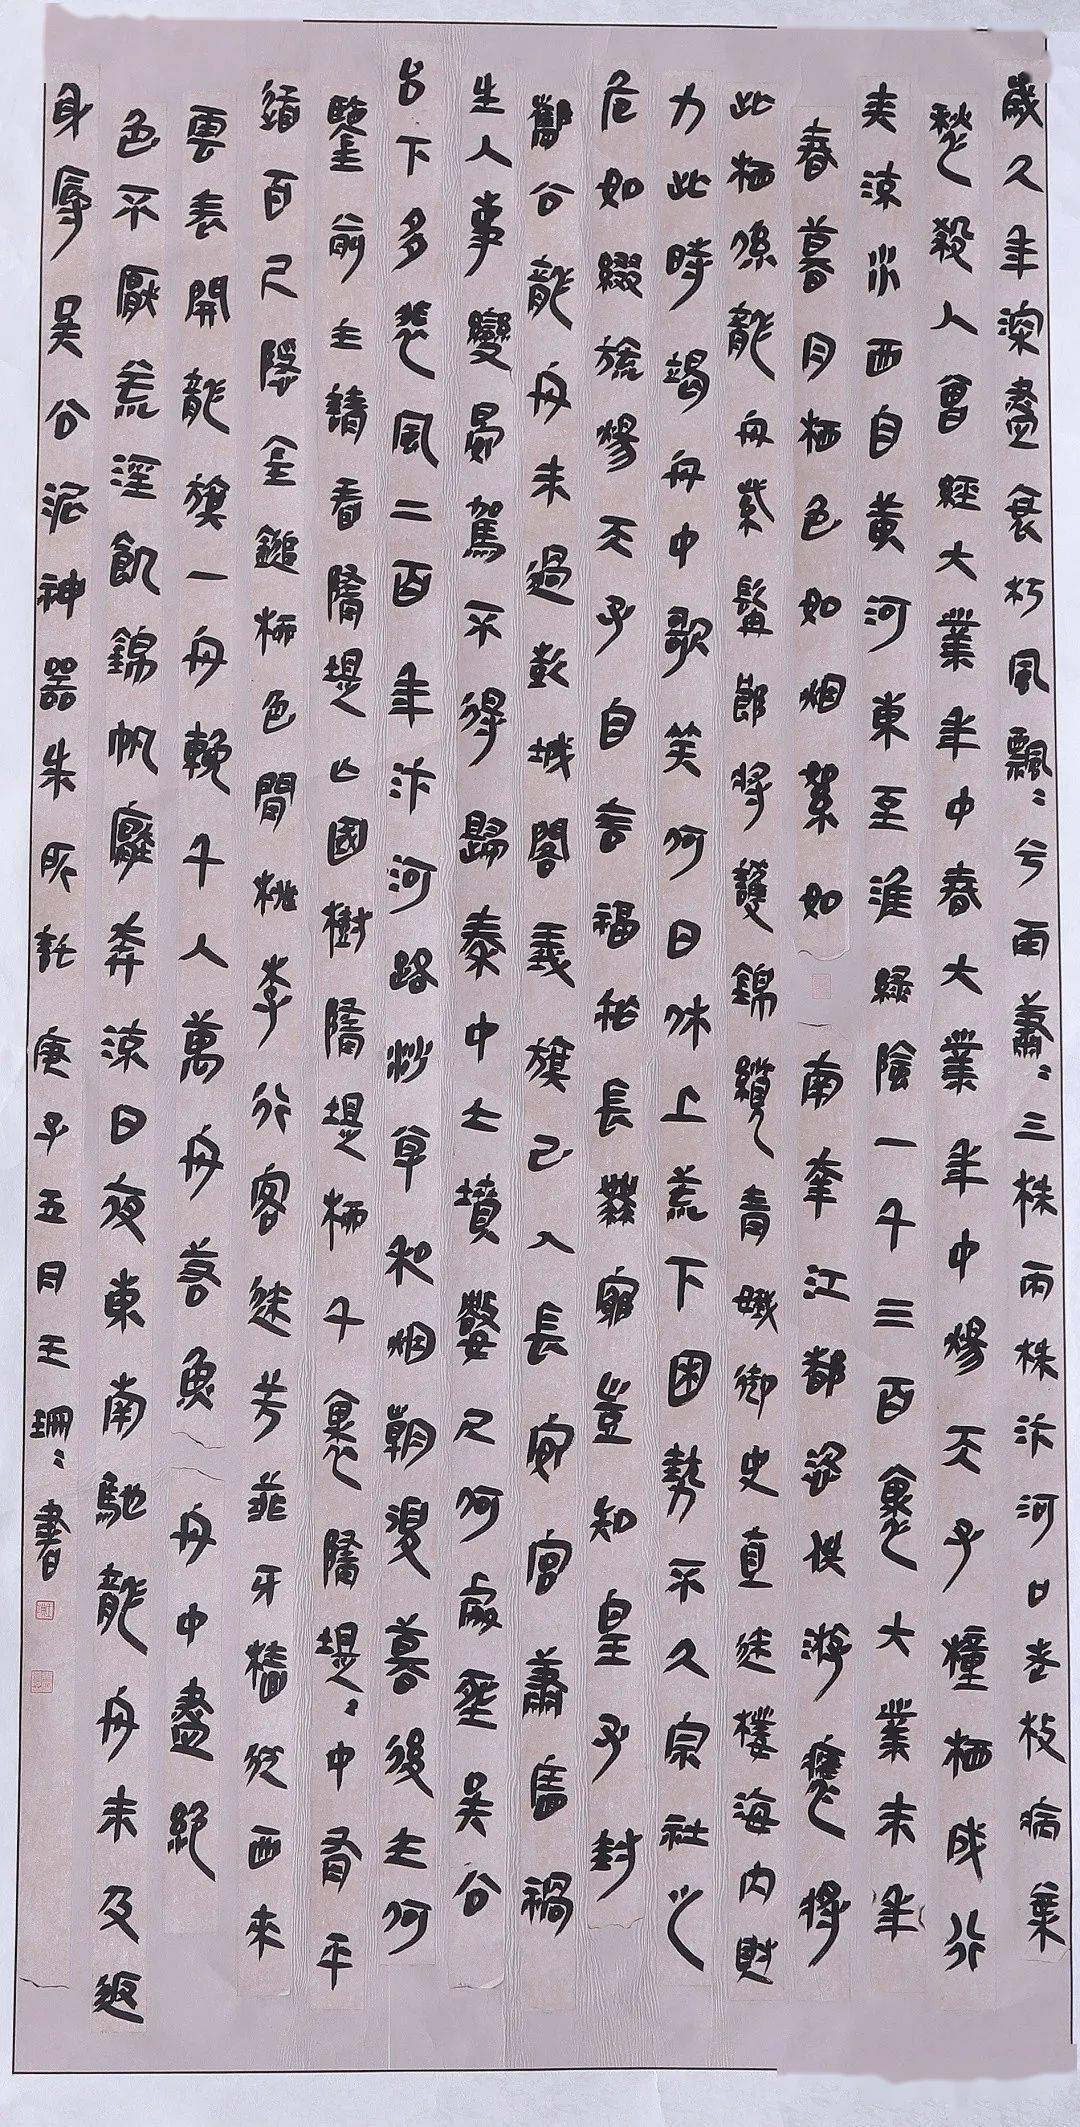 歲久年深盡衰朽風飄〻兮雨蕭〻三株兩株汴河口老枝病葉
愁殺人曾經大業年中春大業年中煬天子種柳成行
夾流水西自黃河東至淮綠陰一千三百里大業末年
春暮月柳色如烟絮如南幸江都恣佚游應將
此柳係龍舟紫髯郎將護錦纜青娥御史直迷樓海內財
力此時竭舟中歌笑何日休上荒下困勢不久宗社之
危如綴旒煬天子自言福祚長無窮豈知皇子封
酅公龍舟未過彭城閣義旗已入長安宮蕭牆禍
生人事變晏駕不得歸秦中土墳數尺何處葬吳公
台下多悲風二百年汴河路沙草和烟朝復暮後主何
鑒前主請看隋堤亡國樹隋堤柳千里隋堤〻中有平
道百尺隱金鎚柳色間桃李行客迷芳菲牙檣從西來
雲表開龍旗一舟輓千人萬舟若魚舟中盡絕
色不厭荒淫飢錦帆癡奔流日夜東南馳龍舟未及返
身辱吳公泥神器朱所託庚子五月王珊〻書